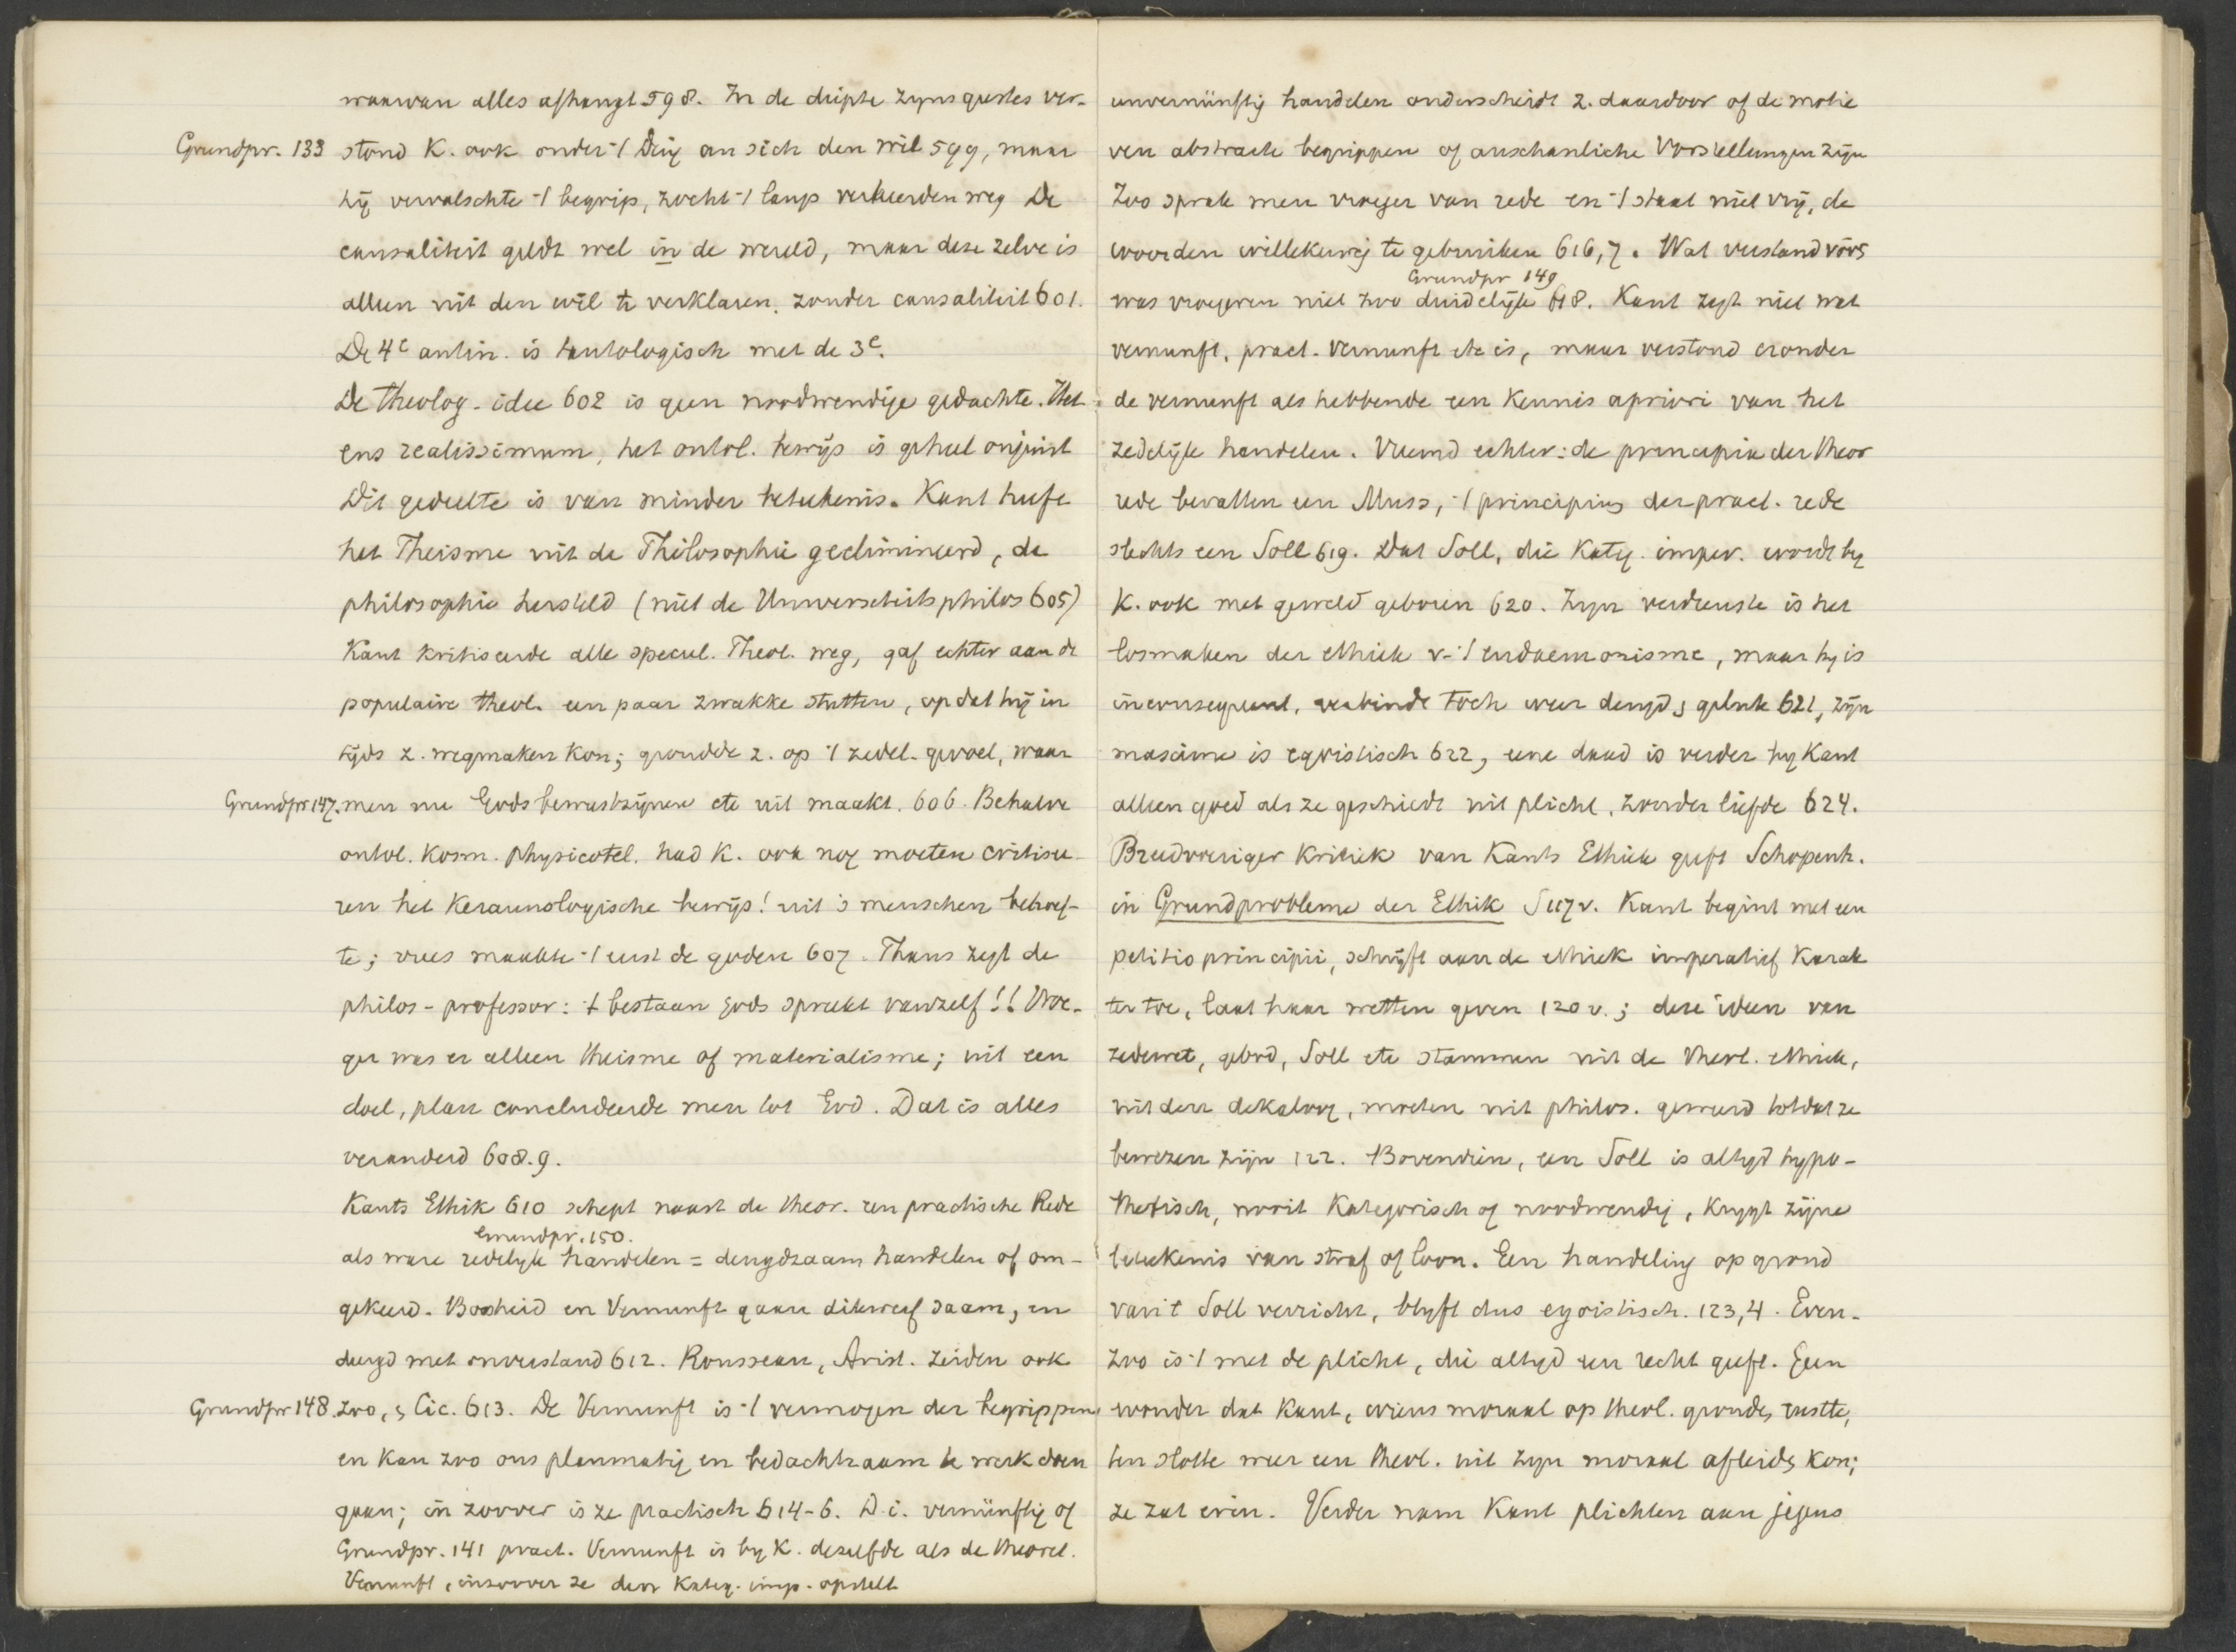 waarvan alles afhangt 598. In de diepte zyns geestes ver-
Grundpr. 133 stond K. ook onder 't Ding an sich den wil 599, maar
hij vervalschte 't begrip, zocht 't langs verkeerden weg De
causaliteit geldt wel in de wereld, maar deze zelve is
alleen uit den wil te verklaren, zonder causaliteit 601.
De 4e antin. is tautologisch met de 3e.
De theolog. idee 602 is geen noodwendige gedachte. Het
ens realissimum, het ontol. bewijs is geheel onjuist
Dit gedeelte is van minder beteekenis. Kant heeft
het Theisme uit de Philosophie geelimineerd, de
philosophie hersteld (niet de Universiteitsphilos 605)
Kant kritiseerde alle specul. Theol. weg, gaf echter aan de
populaire theol. een paar zwakke stutten, opdat hij in
tijds z. wegmaken kon; grondde z. op 't zedel. gevoel, waar
Grundpr 147. men nu Godsbewustzijnen etc uit maakt. 606. Behalve
ontol. kosm. physicotel. had K. ook nog moeten critisee-
ren het Keraunologische bewijs! uit 's menschen behoef-
te; vrees maakte 't eerst de goden 607. Thans zegt de
philos-professor: 't bestaan Gods spreekt vanzelf!! Vroe-
ger was er alleen theisme of materialisme; uit een
doel, plan concludeerde men tot God. Dat is alles
veranderd 608.9.
Kants Ethik 610 schept naast de theor. een practische Rede
Grundpr. 150.
als ware redelyk handelen = deugdzaam handelen of om-
gekeerd. Boosheid en Vernunft gaan dikwerf saam, en
deugd met onverstand 612. Rousseau, Arist. zeiden ook
Grundpr 148. zoo, & Cic. 613. De Vernunft is 't vermogen der begrippen
en kan zoo ons planmatig en bedachtzaam te werk doen
gaan; in zoover is ze practisch 614-6. D.i. vernünftig of
Grundpr. 141 pract. Vernunft is by K. dezelfde als de theoret.
Vernunft, inzoover ze den kateg. imp. opstelt
unvernünftig handelen onderscheidt z. daardoor of de motie
ven abstracte begrippen of anschauliche Vorstellungen zijn
Zoo sprak men vroeger van rede en 't staat niet vrij, de
woorden willekeurig te gebruiken 616,7. Wat verstand vóór
Grundpr 149
was vroeger niet zoo duidelijk 618. Kant zegt niet wat
vernunft, pract. vernunft etc is, maar verstond eronder
de vernunft als hebbende een kennis apriori van het
zedelijk handelen. Vreemd echter: de principia der theor
rede bevatten een Muss, 't principium der pract. rede
slechts een Soll 619. Dat Soll, die Kateg. imper. wordt by
K. ook met geweld geboren 620. Zyn verdienste is het
losmaken der ethiek v. 't eudaemonisme, maar hy is
inconsequent, verbindt toch weer deugd & geluk 621, zijn
maxime is egoistisch 622, eene daad is verder by Kant
alleen goed als ze geschiedt uit plicht, zonder liefde 624.
Breedvoeriger kritiek van Kants Ethiek geeft Schopenh.
in Grundprobleme der Ethik S 117 v. Kant begint met een
petitio principii, schrijft aan de ethiek imperatief karak
ter toe, laat haar wetten geven 120 v.; deze ideen van
zedewet, gebod, Soll etc stammen uit de theol. ethiek,
uit den dekaloog, moeten uit philos. geweerd totdat ze
bewezen zijn 122. Bovendien, een Soll is altyd hypo-
thetisch, nooit kategorisch of noodwendig, krygt zijne
beteekenis van straf of loon. Een handeling op grond
van 't Soll verricht, blyft dus egoistisch. 123,4. Even-
zoo is 't met de plicht, die altyd een recht geeft. Geen
wonder dat Kant, wiens moraal op theol. gronden rustte,
ten slotte weer een theol. uit zyn moraal afleiden kon;
ze zat erin. Verder nam Kant plichten aan jegens